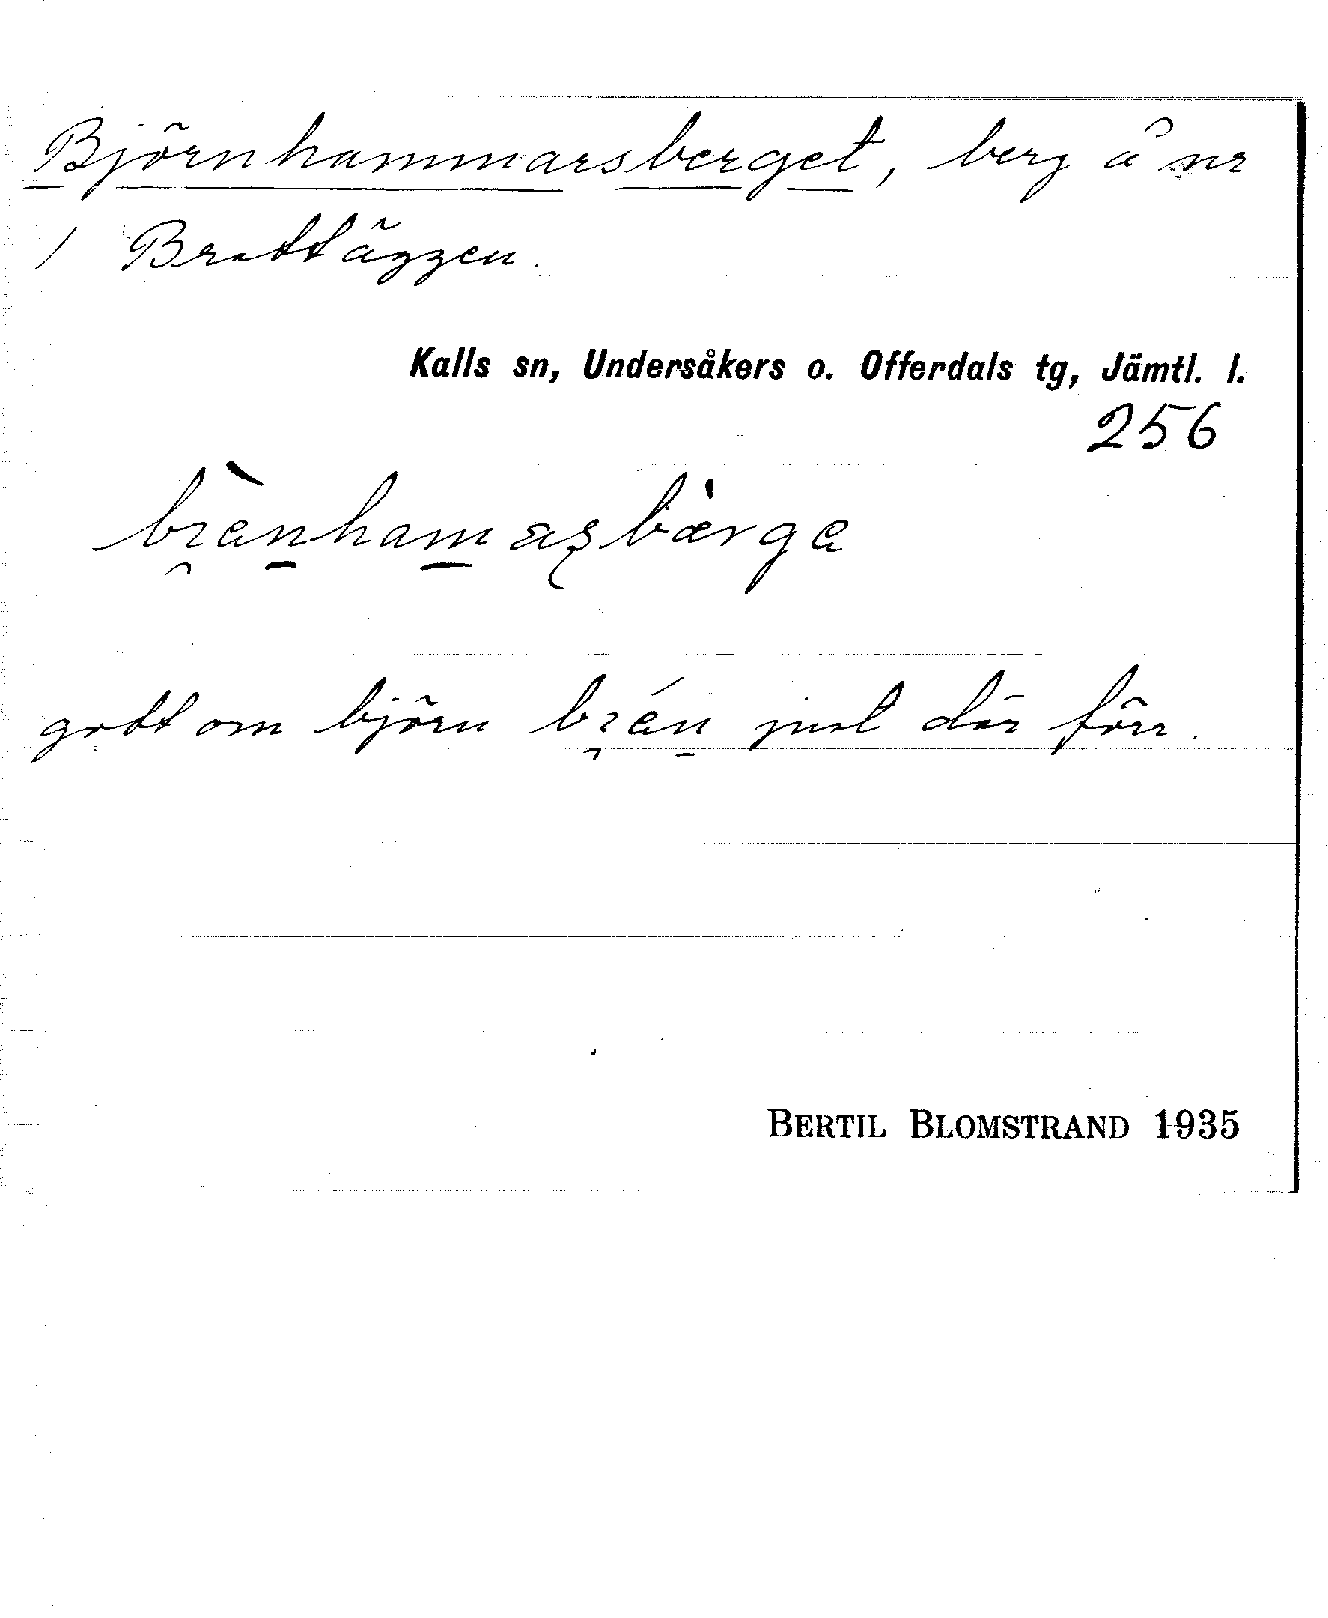 Björnhammarsberget, berg å nr
1 Brattäggen.
Kalls sn, Undersåkers o. Offerdals tg, Jämtl. l.
256
gott om björn just där förr.
BERTIL BLOMSTRAND 1935